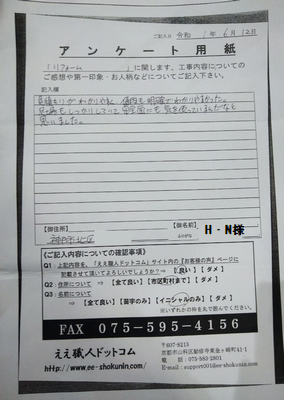 ご記入日 令和 1年 6月 12日
アンケート用紙
「リフォーム 」に関します。工事内容についての
ご感想や第一印象・お人柄などについてご記入下さい。
記入欄
見積もりがわかりやすく 値段も明確でわかりやすかった。
思いました。
【御住所】
【御名前】
ふりがな
H・N様
神戸市北区
《ご記入内容についての確認事項》
Q1 上記内容を、「ええ職人ドットコム」サイト内の『お客様の声』ページに
記載させて頂いてよろしいでしょうか? ⇒ 【良い】 【ダメ】
Q2:住所について ⇒ 【全て良い】【市区町村まで】【ダメ】
Q3:名前について
⇒【全て良い】【苗字のみ】【イニシャルのみ】【ダメ】
※いずれかの枠を丸で囲んでください。
FAX 075-595-4156
ええ職人ドットコム
http://www.ee-shokunin.com/
〒607-8213
電話: 075-583-2801